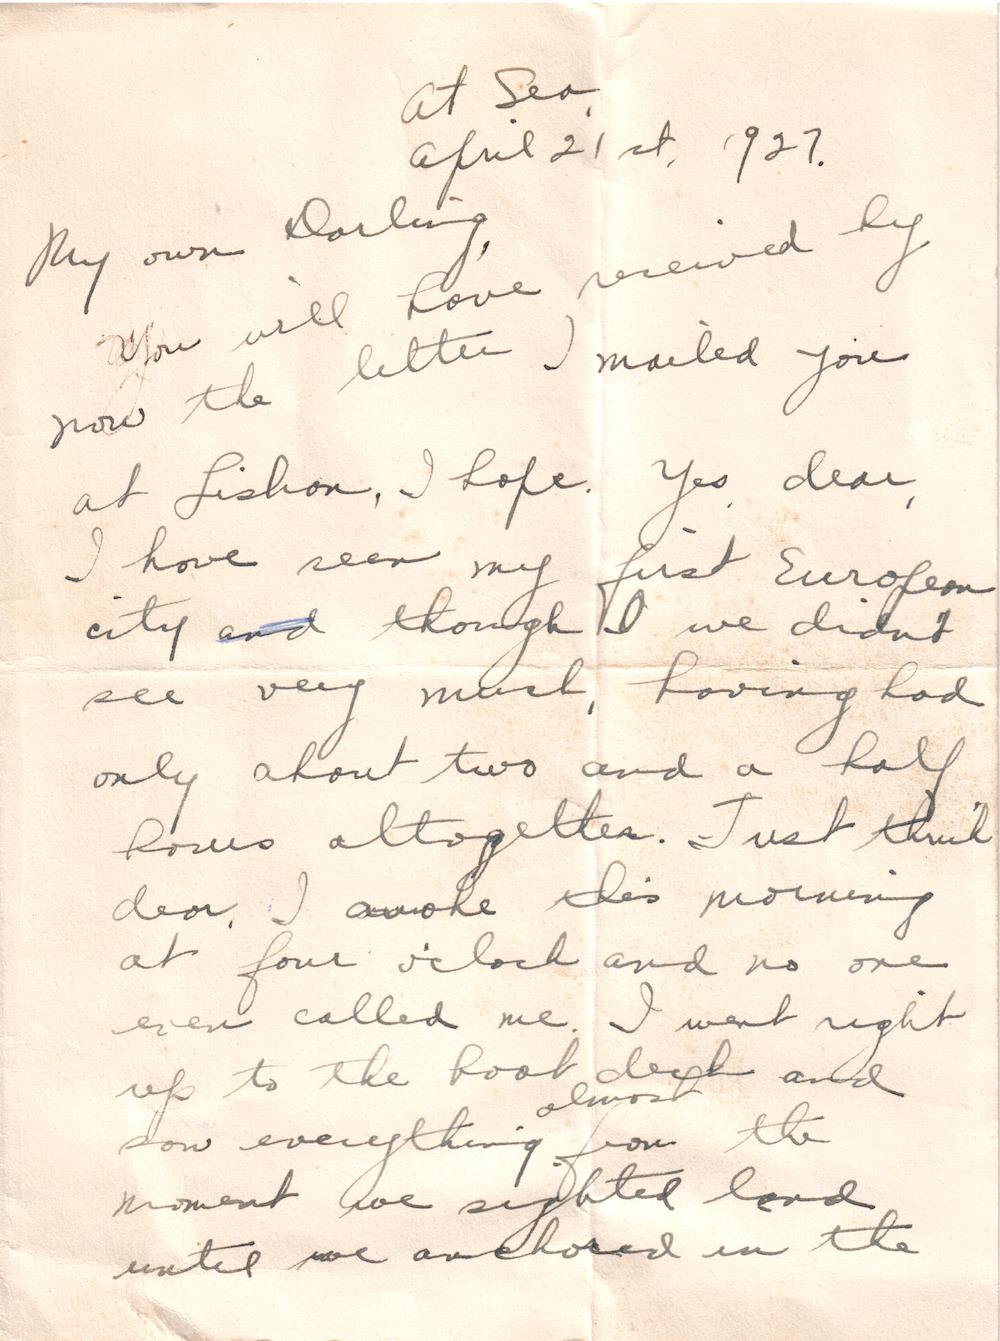 At Sea,
April 21st, 1927.
My own Darling,
You will have received by
now the letter I mailed you
at Lisbon, I hope. Yes, dear,
I have seen my first European
city and though I we didn't
see very much, having had
only about two and a half
hours altogether. Just think
dear, I awoke this morning
at four o'clock and no one
even called me. I went right
up to the boat deck and
almost
saw everything from the
moment we sighted land
until we anchored in the